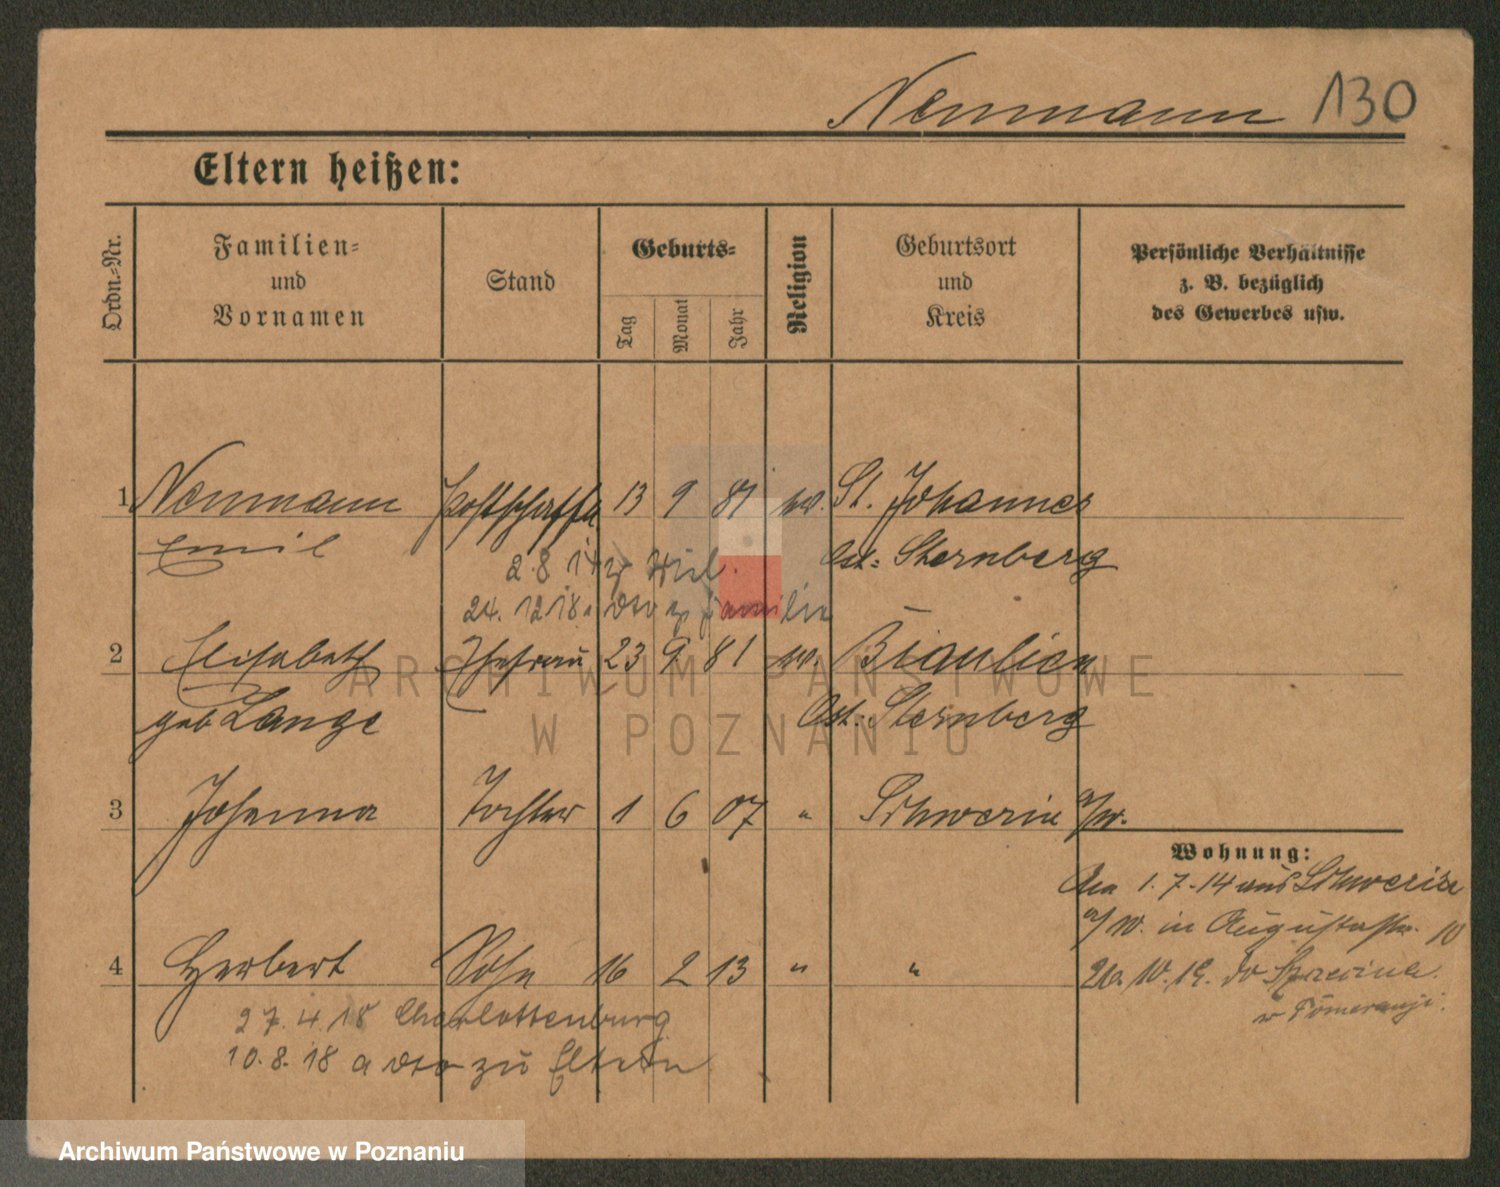 Neumann 130
Eltern heißen:
Ordn.=Nr.
Familien=
und
Vornamen
Stand
Geburts=
Tag
Monat
Jahr
Religion
Geburtsort
und
Kreis
Persönliche Verhältnisse
z. B. bezüglich
des Gewerbes usw.
1 Neumann 13 9 81 ev. St. Johannes
Emil Ost= Sternberg
2.8 Mil.
24.12.18 a dto zu Familie
2 Elisabeth Ehefrau 23 9 81 ev.
geb Lange Ost. Sternberg
3 Johanna Tochter 1 6 07 " Schwerin a/w.
Wohnung:
1.7.14 aus Schwerin
a/W. in Augustastr. 10
4 Herbert Sohn 16 2 13 " "
10.19. do
w Pomeranji.
27.4.18 Charlottenburg
10.8.18 a dto zu Eltern
ARCHIWUM PAŃSTWOWE
W POZNANIU
Archiwum Państwowe w Poznaniu